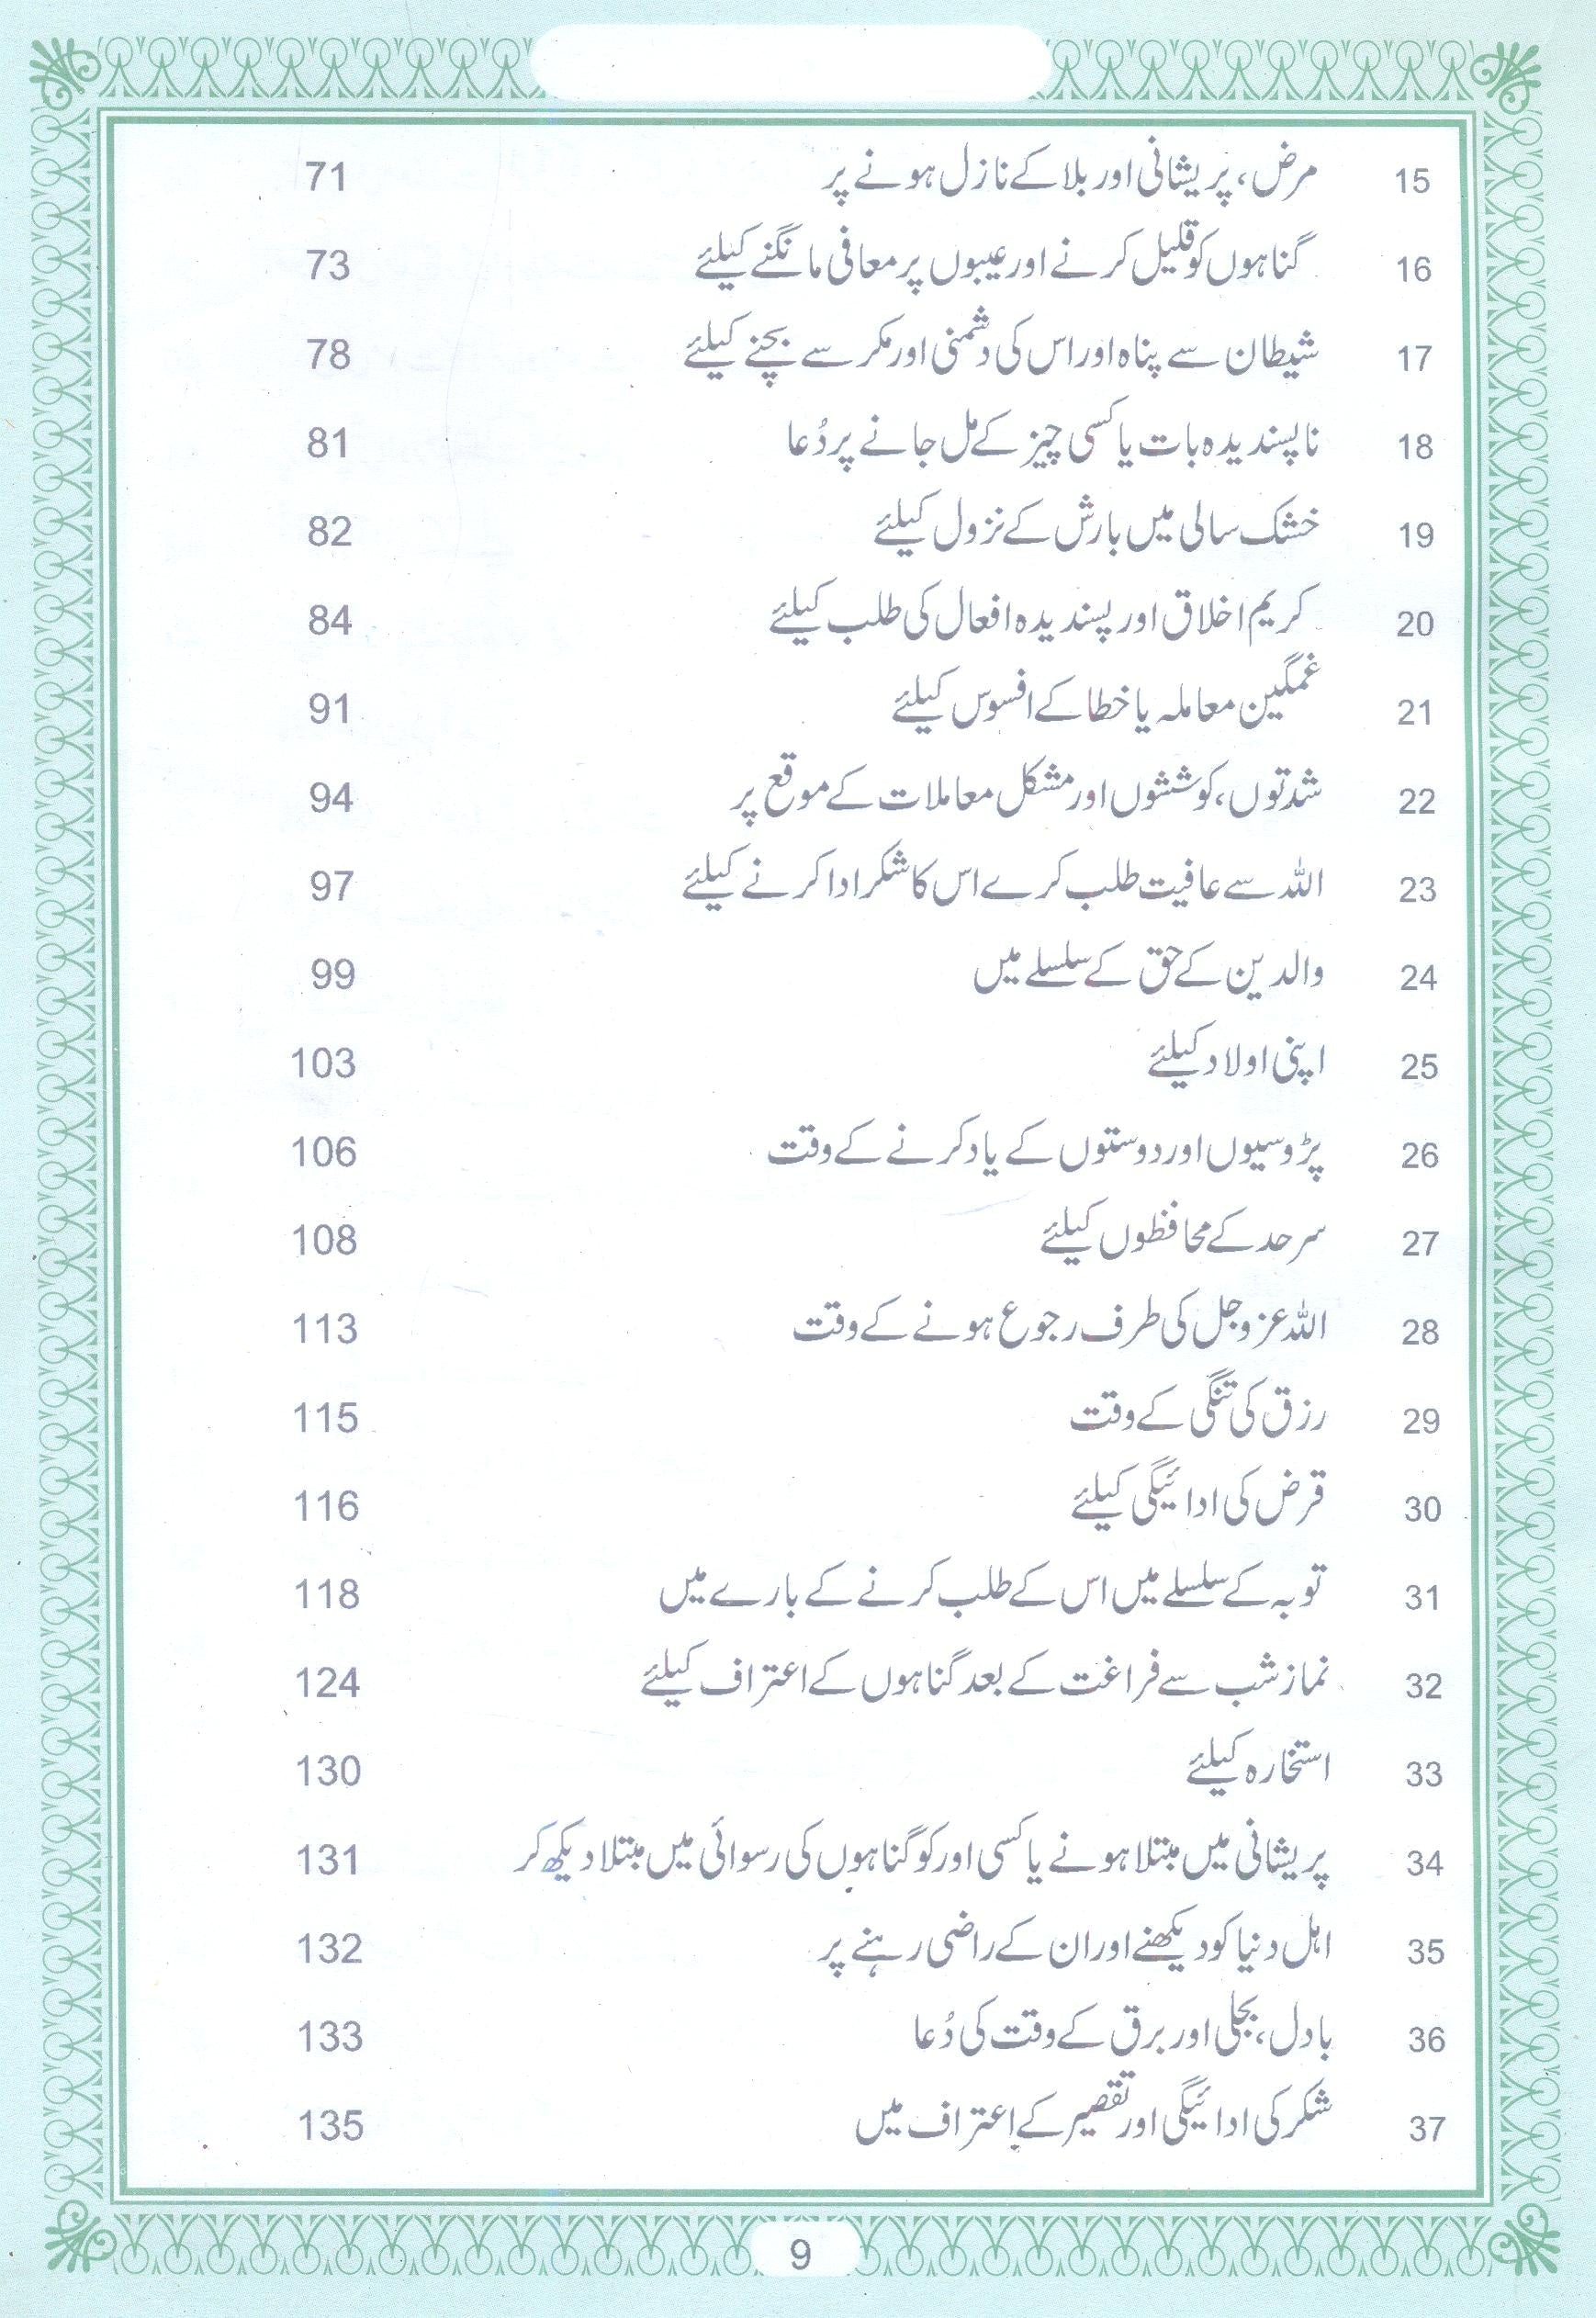 15 مرض، پریشانی اور بلا کے نازل ہونے پر 71
16 گناہوں کو قلیل کرنے اور عیبوں پر معافی مانگنے کیلئے 73
17 شیطان سے پناہ اور اس کی دشمنی اور مکر سے بچنے کیلئے 78
18 ناپسندیدہ بات یا کسی چیز کے مل جانے پر دُعا 81
19 خشک سالی میں بارش کے نزول کیلئے 82
20 کریم اخلاق اور پسندیدہ افعال کی طلب کیلئے 84
21 غمگین معاملہ یا خطا کے افسوس کیلئے 91
22 شدتوں، کوششوں اور مشکل معاملات کے موقع پر 94
23 اللہ سے عافیت طلب کرے اس کا شکر ادا کرنے کیلئے 97
24 والدین کے حق کے سلسلے میں 99
25 اپنی اولاد کیلئے 103
26 پڑوسیوں اور دوستوں کے یاد کرنے کے وقت 106
27 سرحد کے محافظوں کیلئے 108
28 اللہ عزوجل کی طرف رجوع ہونے کے وقت 113
29 رزق کی تنگی کے وقت 115
30 قرض کی ادائیگی کیلئے 116
31 توبہ کے سلسلے میں اس کے طلب کرنے کے بارے میں 118
32 نماز شب سے فراغت کے بعد گناہوں کے اعتراف کیلئے 124
33 استخارہ کیلئے 130
34 پریشانی میں مبتلا ہونے یا کسی اور کو گناہوں کی رسوائی میں مبتلا دیکھ کر 131
35 اہل دنیا کو دیکھنے اور ان کے راضی رہنے پر 132
36 بادل، بجلی اور برق کے وقت کی دُعا 133
37 شکر کی ادائیگی اور تقصیر کے اعتراف میں 135
9